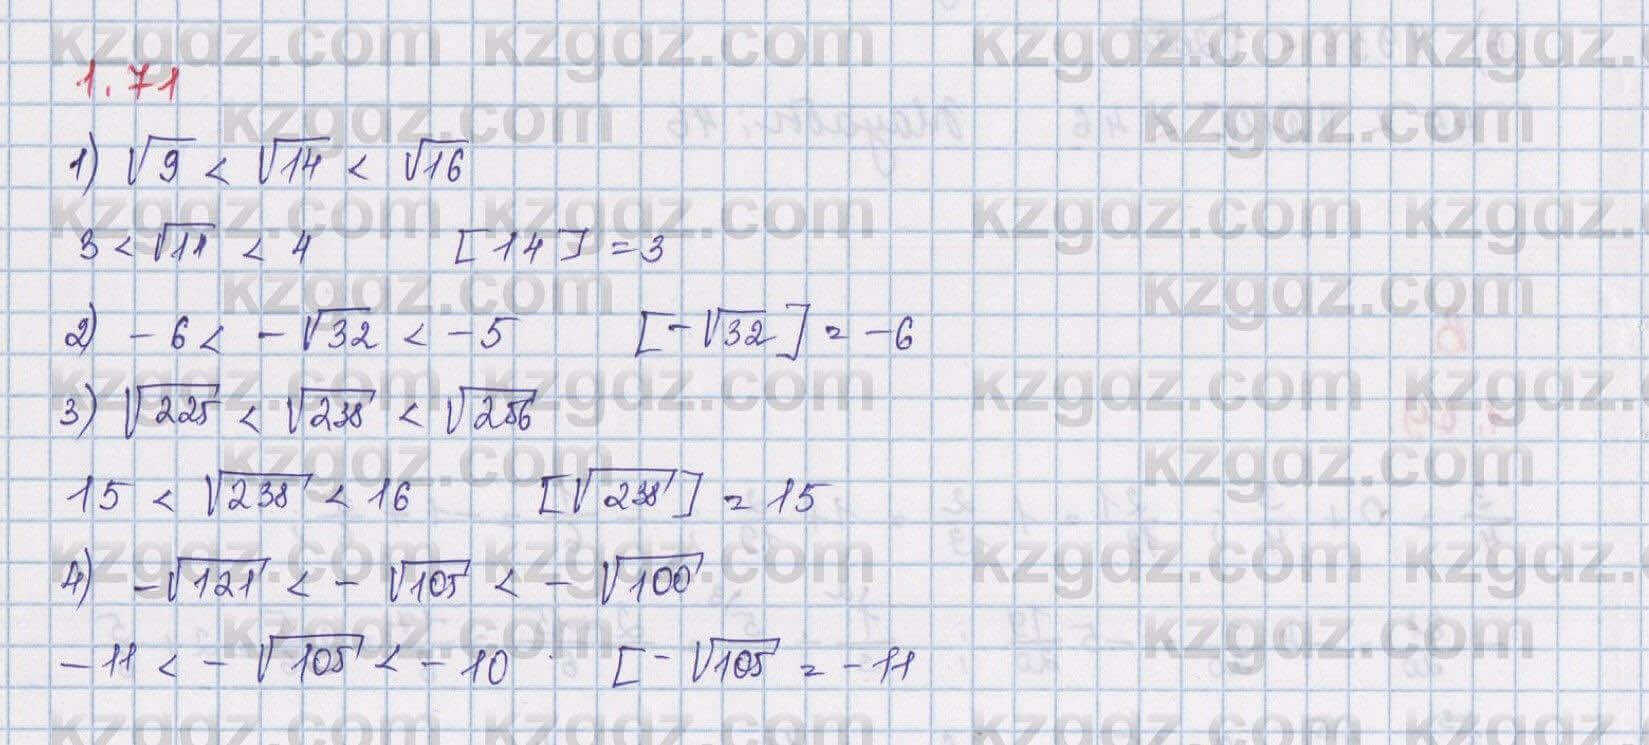 1.71
1) √9 < √14 < √16
3 < √11 < 4 [14] = 3
2) -6 < -√32 < -5 [-√32] = -6
3) √225 < √238 < √256
15 < √238 < 16 [√238] = 15
4) -√121 < -√105 < -√100
-11 < -√105 < -10 [-√105 = -11
kzgdz.com kzgdz.com kzgdz.com kzgdz.com
kzgdz.com kzgdz.com
kzgdz.com kzgdz.com kzgdz.com kzgdz.com
kzgdz.com kzgdz.com
kzgdz.com kzgdz.com kzgdz.com kzgdz.com
kzgdz.com kzgdz.com
kzgdz.com kzgdz.com kzgdz.com kzgdz.com
kzgdz.com kzgdz.com
kzgdz.com kzgdz.com kzgdz.com kzgdz.com